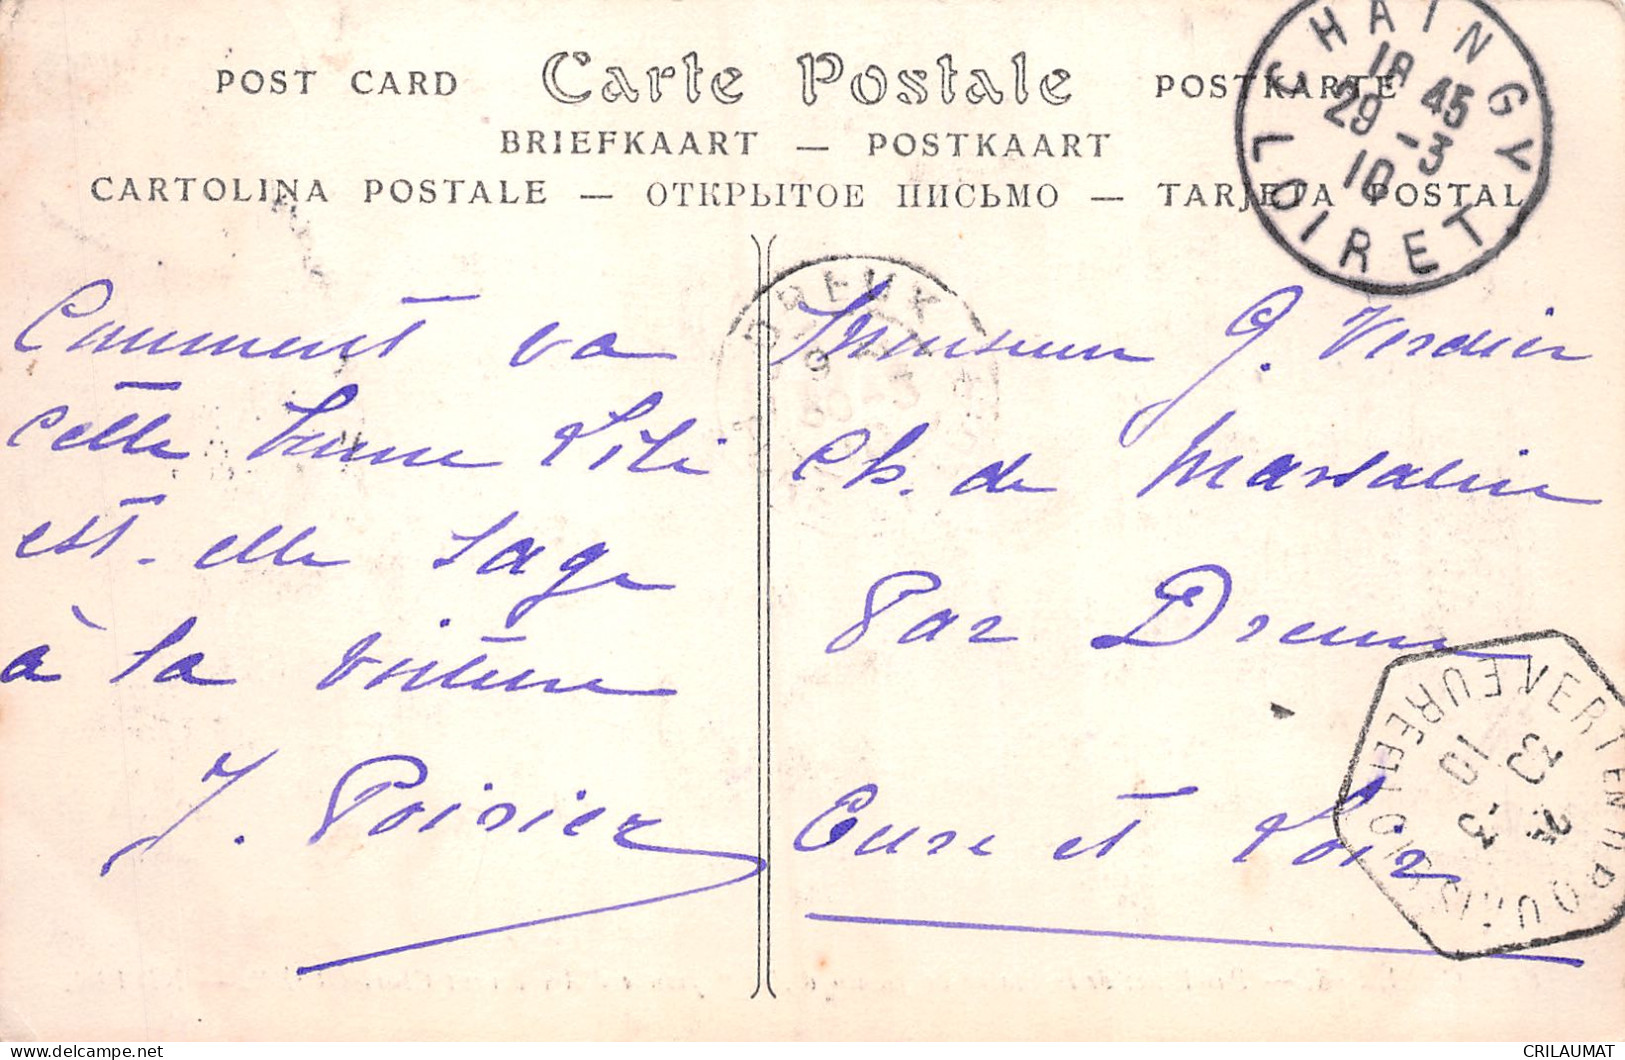 POST CARD Carte Postale POSTKARTE
BRIEFKAART — POSTKAART
CARTOLINA POSTALE — ОТКРЫТОЕ ПИСЬМО — TARJETA POSTAL
CHAINGY
18 45
29 -3
10
LOIRET
DREUX
Comment va
cette bonne Lili
est-elle sage
à la voiture
J. Poirier
Monsieur G. Verdier
Ch. de Marsalin
Par Dreux
Eure et Loir
VERT EN DROUAIS
EURE ET LOIR
-3
10
CRILAUMAT